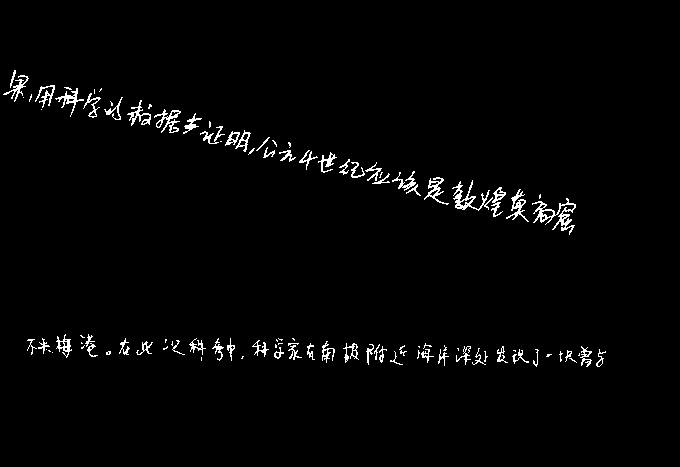 果,用科学的数据来证明,公元4世纪应该是敦煌莫高窟
不来梅港。在此次科考中,科学家在南极附近海床深处发现了一块曾与